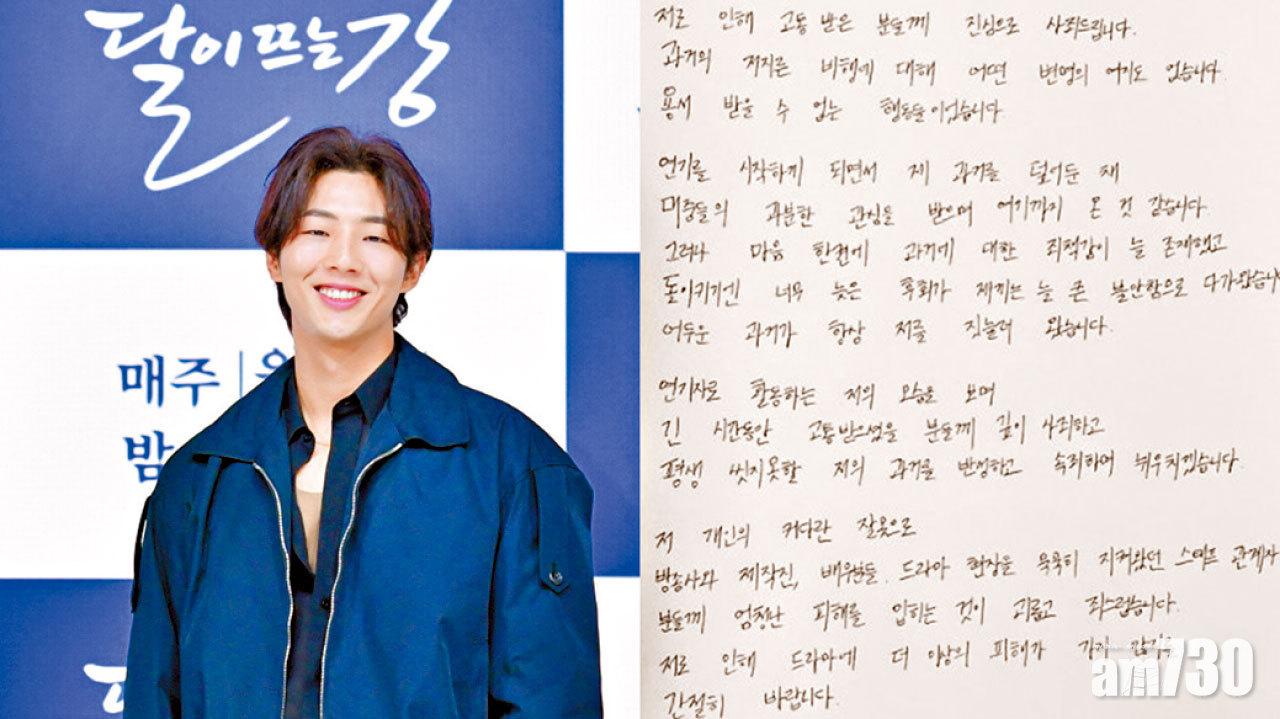 달이 뜨는 강
매주
밤
저로 인해 고통 받은 분들께 진심으로 사죄드립니다.
과거의 저지른 비행에 대해 어떤 변명의 여지도 없습니다.
용서 받을 수 없는 행동들이었습니다.
연기를 시작하게 되면서 제 과거를 덮어둔 채
대중들의 과분한 관심을 받으며 여기까지 온 것 같습니다.
그러나 마음 한켠에 과거에 대한 죄책감이 늘 존재했고
돌이키기엔 너무 늦은 후회가 제게는 늘 큰 불안함으로 다가왔습니
어두운 과거가 항상 저를 짓눌러 왔습니다.
연기자로 활동하는 저의 모습을 보며
긴 시간동안 고통받으셨을 분들께 깊이 사죄하고
평생 씻지못할 저의 과거를 반성하고 속죄하며 뉘우치겠습니다.
저 개인의 커다란 잘못으로
방송사와 제작진, 배우분들, 드라마 현장을 묵묵히 지켜왔던 스태프 관계자
분들께 엄청난 피해를 입히는 것이 괴롭고 죄스럽습니다.
저로 인해 드라마에 더 이상의 피해가 가지 않기를
간절히 바랍니다.
am730